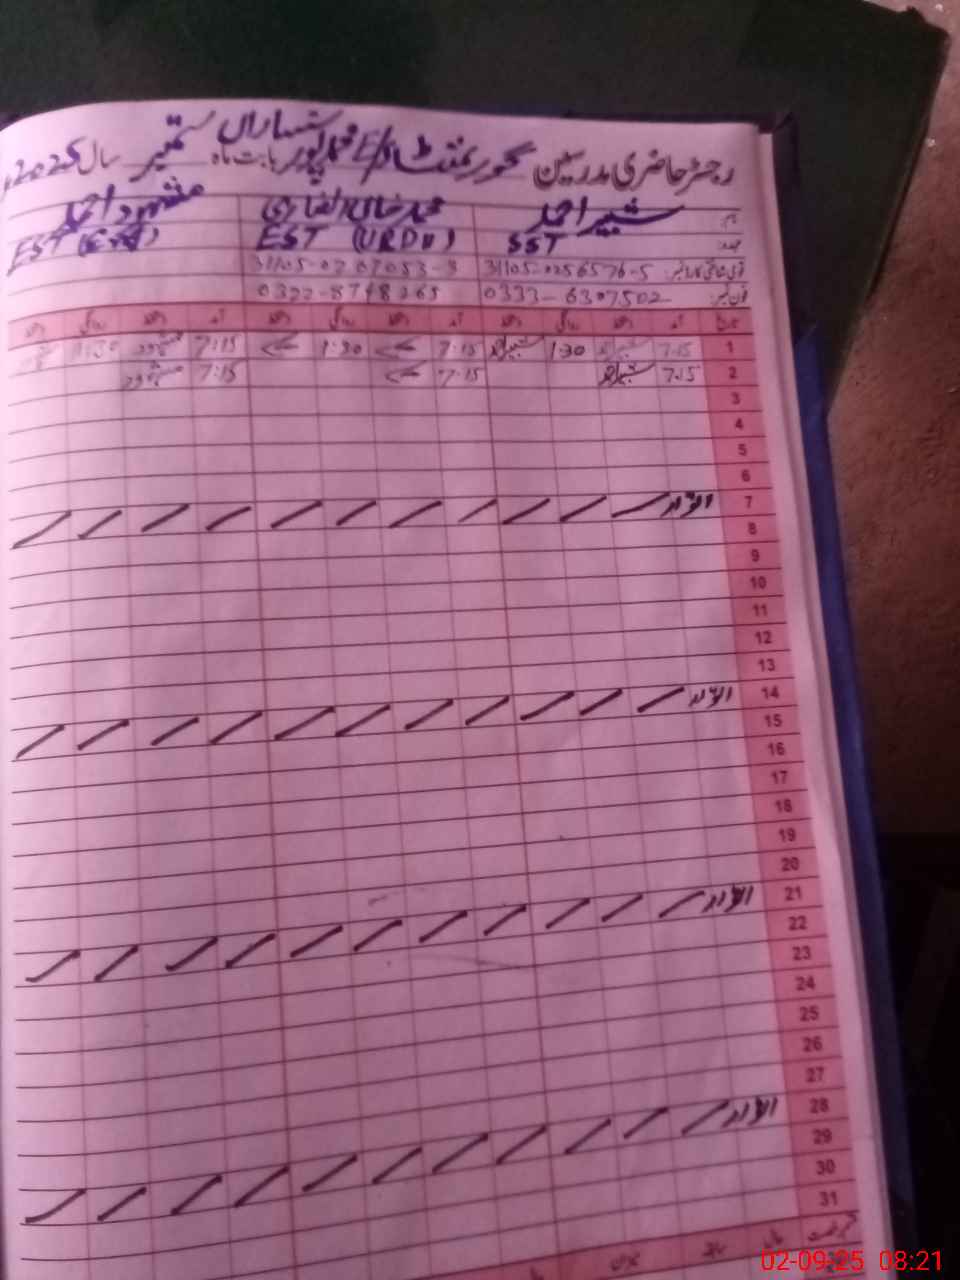 رجسٹر حاضری مدرسین گورنمنٹ E/S بابت ماہ ستمبر سال 2025
نام شبیر احمد مشہود احمد
عہدہ SST EST (URDU) EST
قومی شناختی کارڈ نمبر 31105-0256576-5 31105-0207053-3
فون نمبر 0333-6307502
تاریخ آمد دستخط روانگی دستخط آمد دستخط روانگی دستخط آمد دستخط روانگی دستخط
1 7:15 شبیر احمد 1:30 شبیر احمد 7:15 1:30 7:15
2 7:15 شبیر احمد 7:15 7:15
3
4
5
6
7 اتوار
8
9
10
11
12
13
14 اتوار
15
16
17
18
19
20
21 اتوار
22
23
24
25
26
27
28 اتوار
29
30
31
02-09-25 08:21